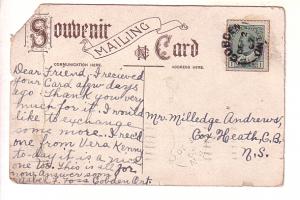 Souvenir
MAILING
Card
COMMUNICATION HERE.
ADDRESS HERE.
Dear Friend, I recieved
Your Card a few days
ago. Thank you very
much for it. I would
like to exchange
some more. I rec'd
one from Vera Kenny
to-day it is a nice
one too. This is all for
now answer soon
Mabel F. Foss Cobden Ont.
Mr. Milledge Andrews,
Cox Heath, C.B.
N.S.